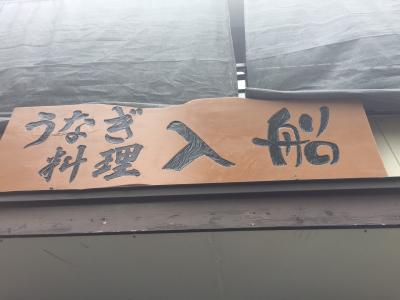 うなぎ
料理
入船